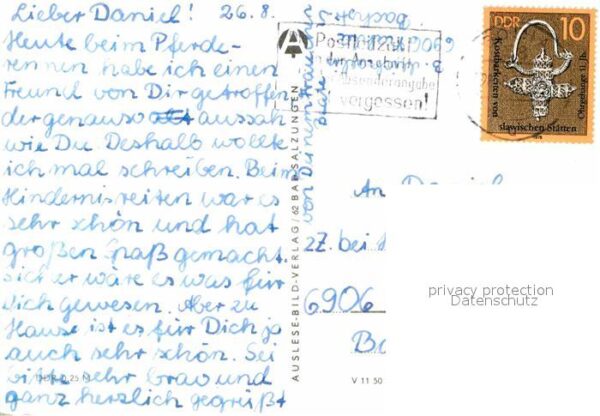 Lieber Daniel! 26.8.
Heute beim Pferde-
rennen habe ich einen
Freund von Dir getroffen
der genauso aussah
wie Du. Deshalb wollte
ich mal schreiben. Beim
Hindernisreiten war es
sehr schön und hat
großen Spaß gemacht.
sicher wäre es was für
Dich gewesen. Aber zu
Hause ist es für Dich ja
auch sehr schön. Sei
bitte sehr brav und
ganz herzlich gegrüßt
von Deinem
AUSLESE-BILD-VERLAG/62 BAD SALZUNGEN
V 11 50
Postleitzahl
Absenderangabe
vergessen!
DDR 10
Kostbarkeiten von
slawischen Stätten
Ohrgehänge 11. Jh.
An Daniel
ZZ. bei
6906
privacy protection
Datenschutz